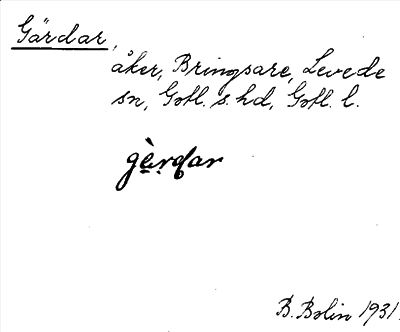 Gärdar,
åker, Bringsare, Levede
sn, Gotl. s. hd, Gotl. l.
gèrdar
B. Bolin 1931.